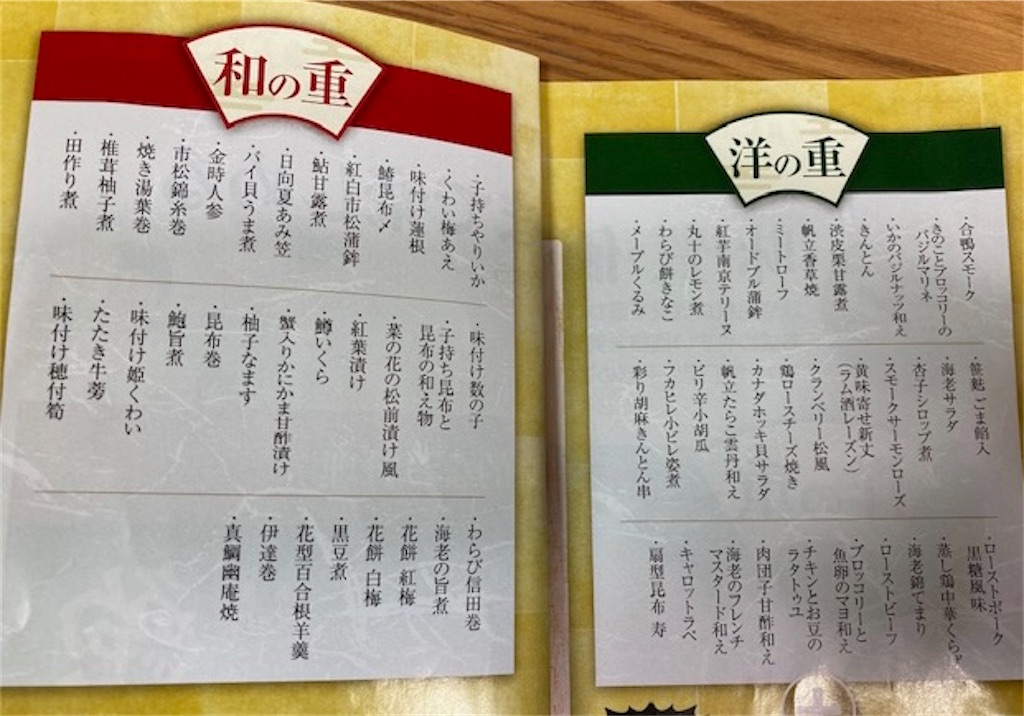 和の重
・子持ちやりいか
・くわい梅あえ
・味付け蓮根
・鰆昆布〆
・紅白市松蒲鉾
・鮎甘露煮
・日向夏あみ笠
・バイ貝うま煮
・金時人参
・市松錦糸巻
・焼き湯葉巻
・椎茸柚子煮
・田作り煮
・味付け数の子
・子持ち昆布と
昆布の和え物
・菜の花の松前漬け風
・紅葉漬け
・鱒いくら
・蟹入りかにかま甘酢漬け
・柚子なます
・昆布巻
・鮑旨煮
・味付け姫くわい
・たたき牛蒡
・味付け穂付筍
・わらび信田巻
・海老の旨煮
・花餅 紅梅
・花餅 白梅
・黒豆煮
・花型百合根羊羹
・伊達巻
・真鯛幽庵焼
洋の重
・合鴨スモーク
・きのことブロッコリーの
バジルマリネ
・いかのバジルナッツ和え
・きんとん
・渋皮栗甘露煮
・帆立香草焼
・ミートローフ
・オードブル蒲鉾
・紅芋南京テリーヌ
・丸十のレモン煮
・わらび餅きなこ
・メープルくるみ
・笹麩 ごま餡入
・海老サラダ
・杏子シロップ煮
・スモークサーモンローズ
・黄味寄せ新丈
(ラム酒レーズン)
・クランベリー松風
・鶏ロースチーズ焼き
・カナダホッキ貝サラダ
・帆立たらこ雲丹和え
・ピリ辛小胡瓜
・フカヒレ小ヒレ姿煮
・彩り胡麻きんとん串
・ローストポーク
黒糖風味
・蒸し鶏中華くらげ
・海老錦てまり
・ローストビーフ
・ブロッコリーと
魚卵のマヨ和え
・チキンとお豆の
ラタトゥユ
・肉団子甘酢和え
・海老のフレンチ
マスタード和え
・キャロットラペ
・扇型昆布 寿